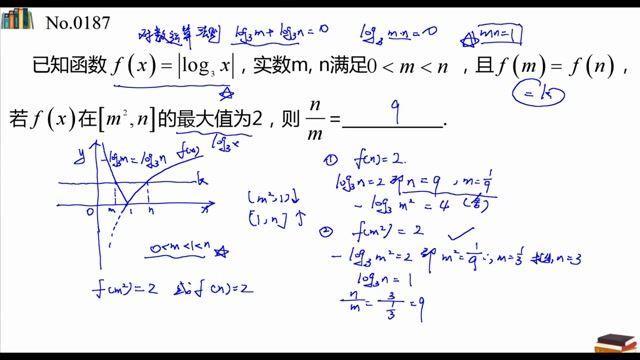 No.0187
对数运算法则 log₃m+log₃n=0 log₃mn=0 ☆ mn=1
已知函数 f(x)=|log₃x|,实数m, n满足0<m<n ,且f(m)=f(n),
=k
若f(x)在[m²,n]的最大值为2,则 n/m = 9 .
log₃x
y -log₃m=log₃n f(x)
k
0 m 1 n x
0<m<1<n ☆
f(m²)=2 或 f(n)=2
[m²,1]↓
[1,n]↑
① f(n)=2.
log₃n=2 即 n=9 , m=1/9
-log₃m²=4 (舍)
② f(m²)=2 ✓
-log₃m²=2 即 m²=1/9 ∴, m=1/3 n=3
log₃n=1
n/m=3/(1/3)=9